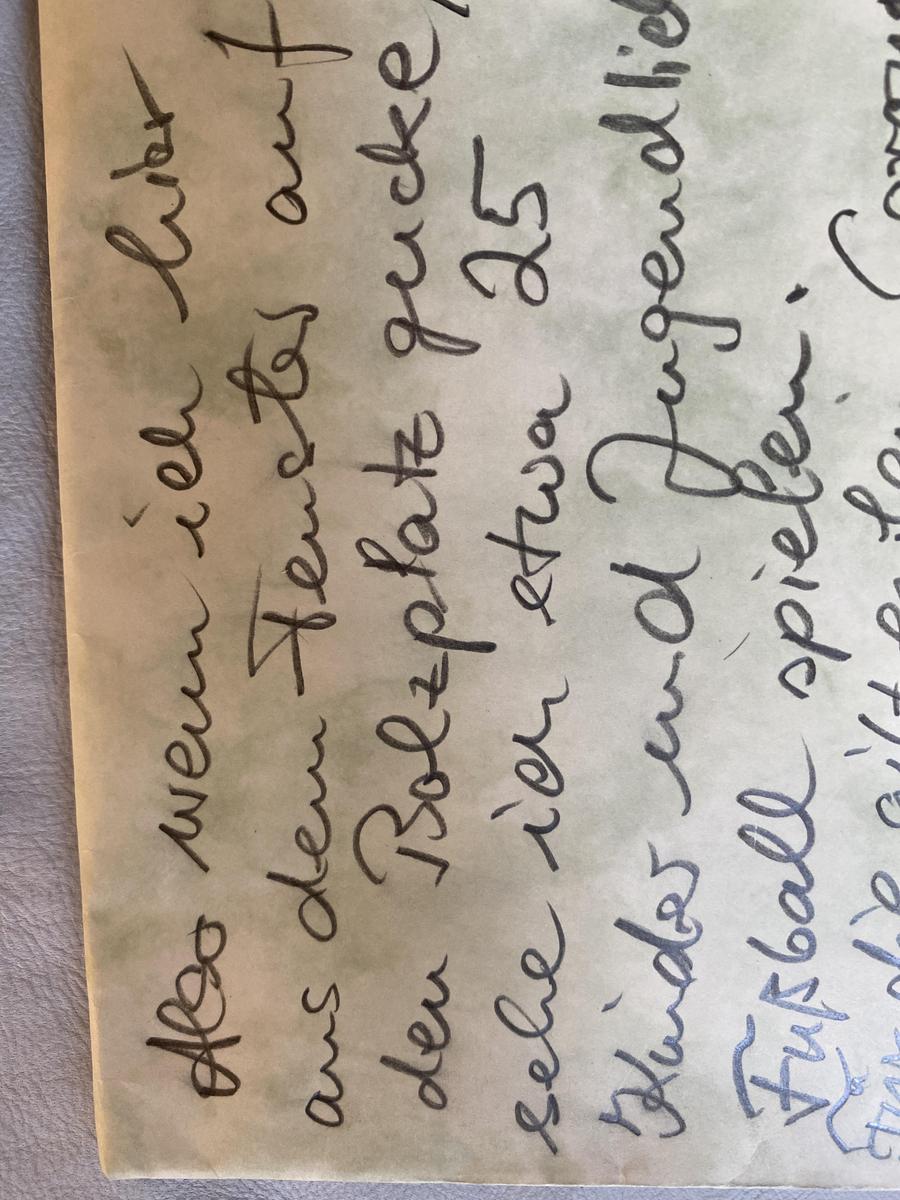 Also wenn ich hier
aus dem Fenster auf
den Bolzplatz gucke,
sehe ich etwa 25
Kinder und Jugendlich
Fußball spielen.
Für die gilt